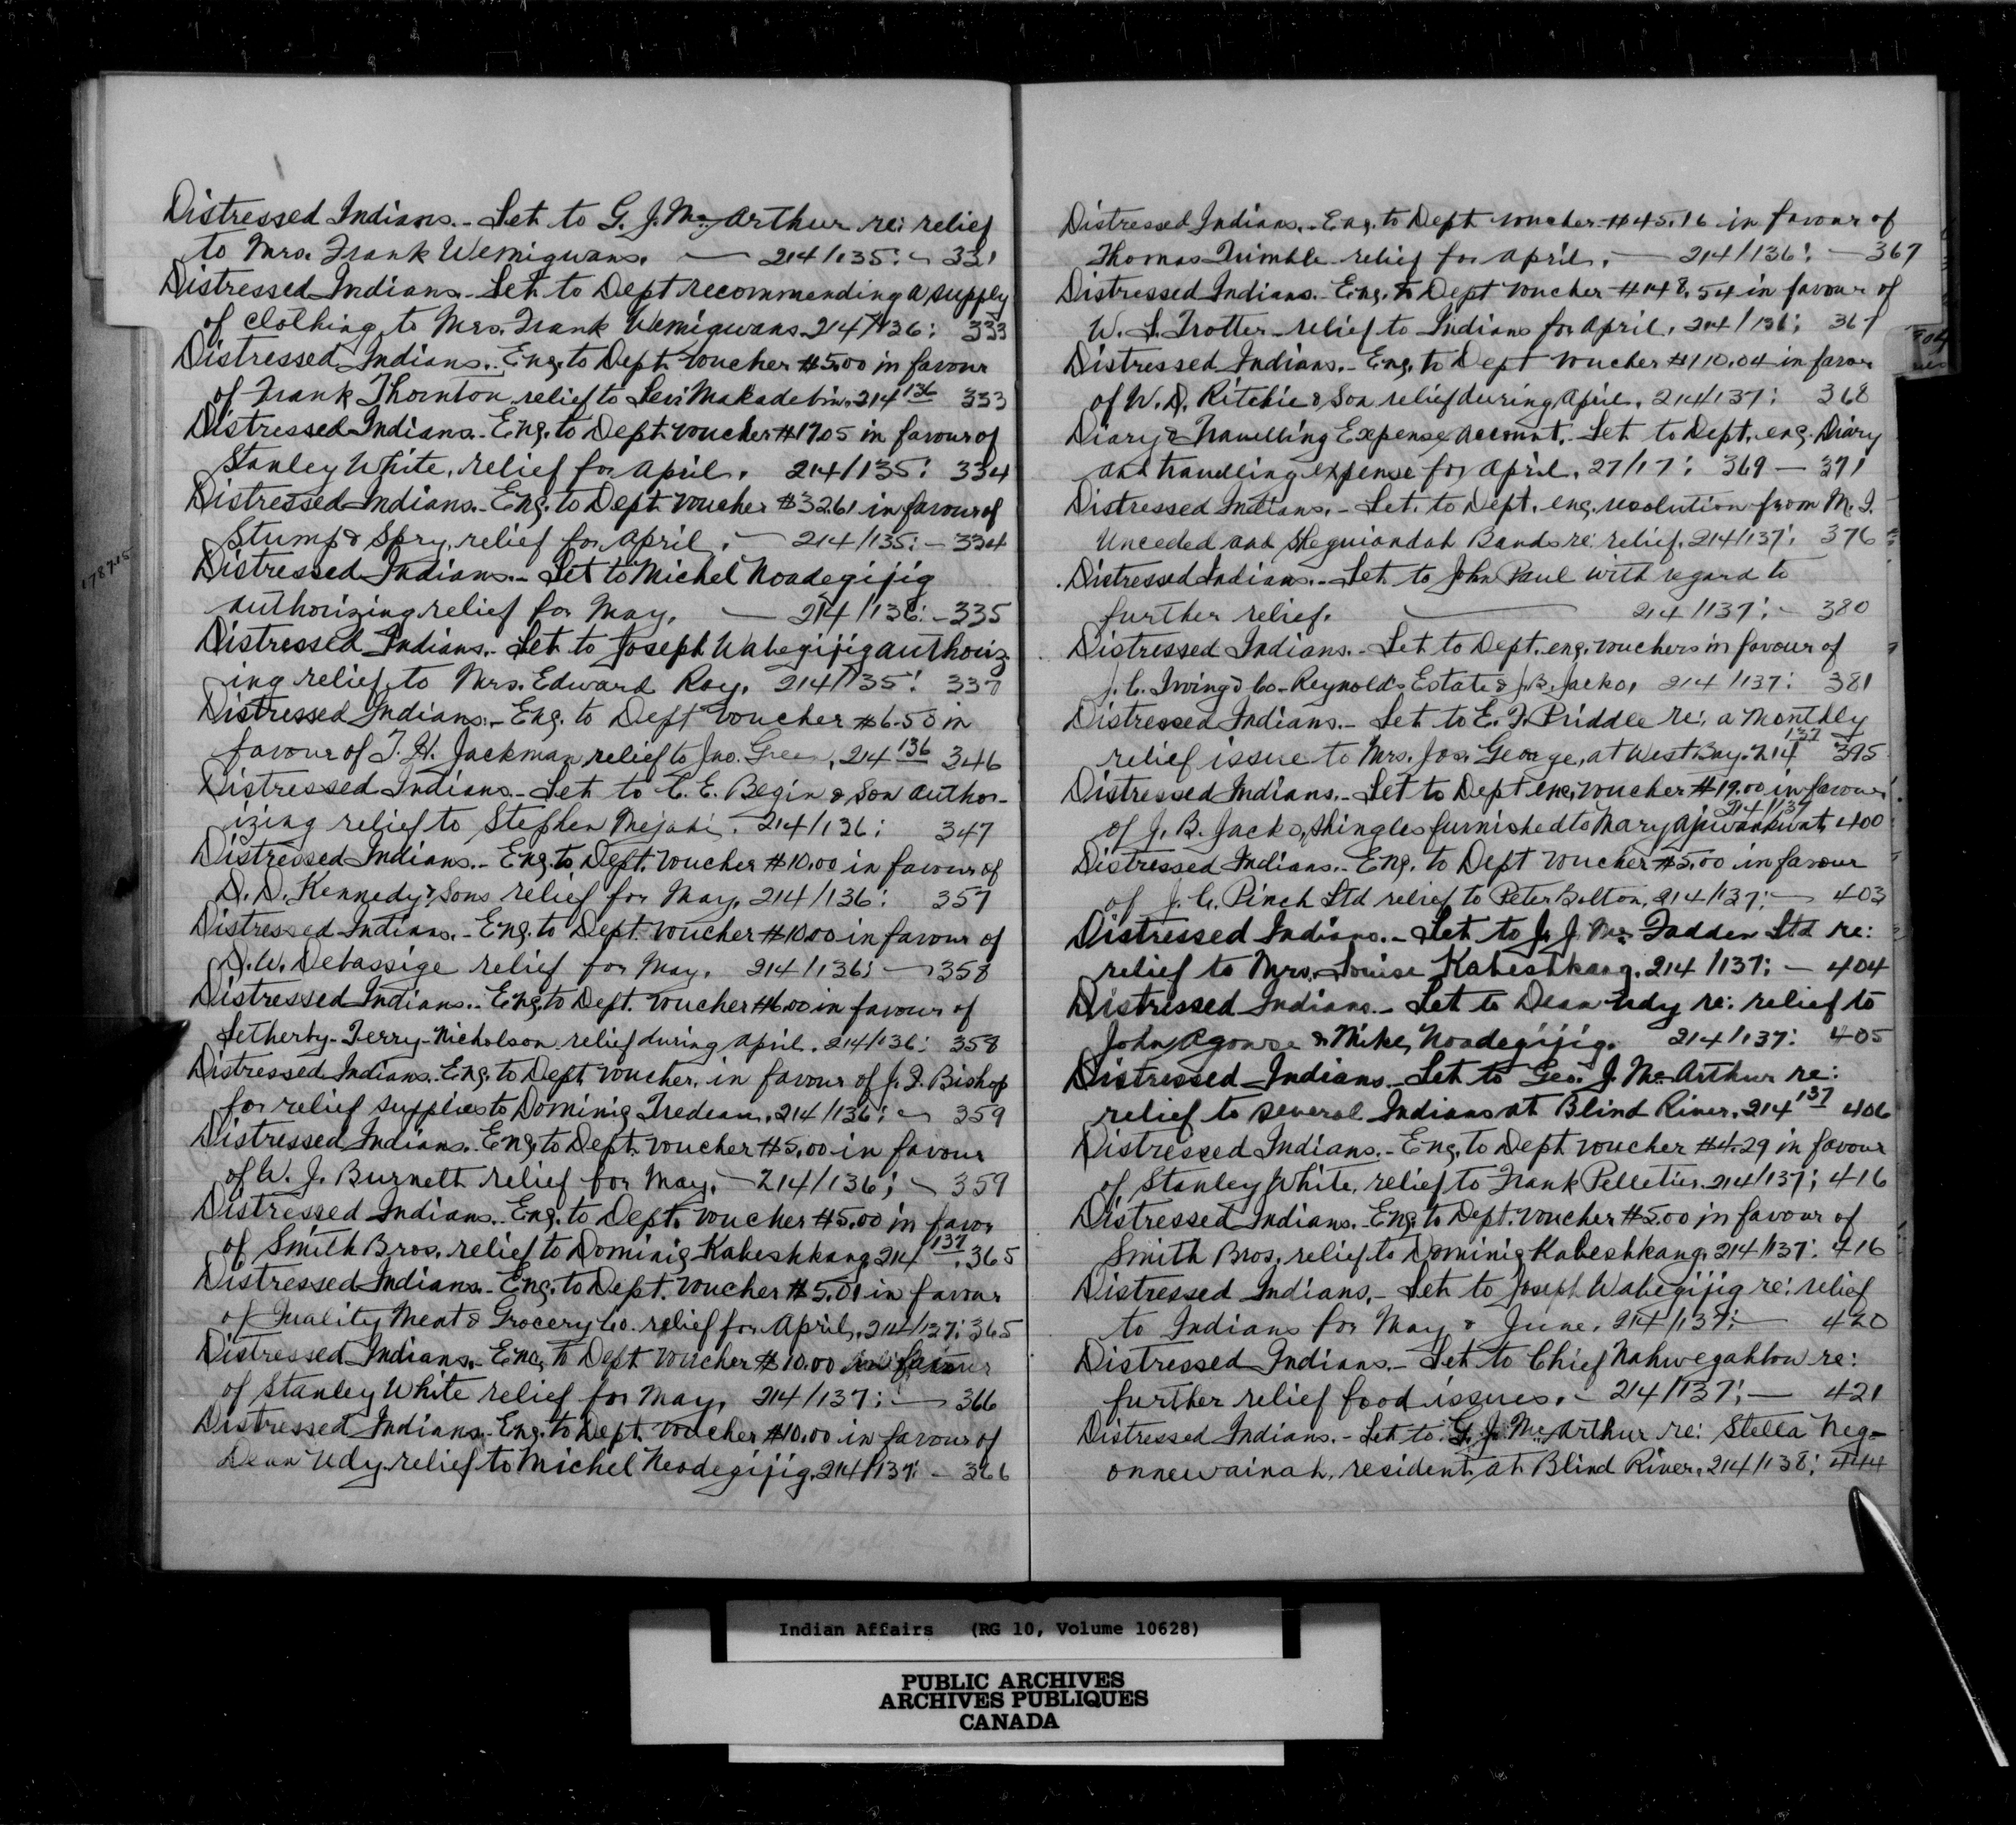 Distressed Indians.- Let. to G. J. Mc Arthur re: relief
to Mrs. Frank Wemigwans. — 214/135: - 331
Distressed Indians.- Let. to Dept recommending a supply
of clothing to Mrs. Frank Wemigwans. 214/136: 333
Distressed Indians.- Eng. to Dept. voucher $5.00 in favour
of Frank Thornton, relief to Levi Makadebin. 214/136 333
Distressed Indians.- Eng. to Dept. voucher $17.05 in favour of
Stanley White, relief for April. 214/135: 334
Distressed Indians.- Eng. to Dept. voucher $32.61 in favour of
Stump & Spry, relief for April. — 214/135: - 334
Distressed Indians.- Let to Michel Noadegijig
authorizing relief for May. — 214/136: - 335
Distressed Indians.- Let. to Joseph Wabegijig authoriz
ing relief to Mrs. Edward Roy. 214/135: 337
Distressed Indians.- Eng. to Dept voucher $6.50 in
favour of T. H. Jackman relief to Jno. Green, 214/136 346
Distressed Indians.- Let to C. E. Begin & Son author-
izing relief to Stephen Mejaki. 214/136: 347
Distressed Indians.- Eng. to Dept. voucher $10.00 in favour of
D. D. Kennedy & Sons relief for May. 214/136: 357
Distressed Indians.- Eng. to Dept. voucher $10.00 in favour of
D. W. Debassige relief for May. 214/136: — 358
Distressed Indians.- Eng. to Dept. voucher $6.00 in favour of
Letherby-Terry-Nicholson relief during April. 214/136: 358
Distressed Indians. Eng. to Dept voucher, in favour of J. I. Bishop
for relief supplies to Dominig Tredeau. 214/136: - 359
Distressed Indians. Eng. to Dept. voucher $5.00 in favour
of W. J. Burnett relief for May. - 214/136; - 359
Distressed Indians.- Eng. to Dept. voucher $5.00 in favor
of Smith Bros. relief to Dominig Kabeshkang 214/137. 365
Distressed Indians.- Eng. to Dept. voucher $5.01 in favour
of Quality Meat & Grocery Co. relief for April. 214/137: 365
Distressed Indians.- Enc. to Dept voucher $10.00 in favour
of Stanley White relief for May, 214/137: — 366
Distressed Indians.- Eng. to Dept. voucher $10.00 in favour of
Dean Udy relief to Michel Neodegijig. 214/137: - 366
Distressed Indians.- Eng. to Dept voucher $45.16 in favour of
Thomas Trimble relief for April. — 214/136: — 367
Distressed Indians.- Eng. to Dept voucher $48.54 in favour of
W. S. Trotter relief to Indians for April. 214/136; 367
Distressed Indians.- Eng. to Dept voucher $110.04 in favor
of W. D. Ritchie & Son relief during April. 214/137: 368
Diary & Travelling Expense account. Let to Dept. enc. Diary
and travelling expense for April. 27/17: 369 — 371
Distressed Indians.- Let. to Dept. enc. resolution from M. I.
Unceded and Sheguiandah Bands re: relief. 214/137: 376
Distressed Indians.- Let to John Paul with regard to
further relief. — 214/137: - 380
Distressed Indians.- Let to Dept. enc. vouchers in favour of
J. C. Irving & Co-Reynold's Estate & J. B. Jacko, 214/137: 381
Distressed Indians.- Let to E. F. Priddle re: a monthly
relief issue to Mrs. Jos. George, at West Bay. 214/137 395
Distressed Indians.- Let to Dept enc. voucher $19.00 in favour
214/137
of J. B. Jacko, shingles furnished to Mary Apwankwat, 400
Distressed Indians.- Eng. to Dept voucher $5.00 in favour
of J. C. Pinch Ltd relief to Peter Bolton, 214/137: — 403
Distressed Indians.- Let to J. J. Mc Fadden Ltd re:
relief to Mrs. Louise Kabeshkang. 214/137: — 404
Distressed Indians.- Let to Dean Udy re: relief to
John Agowse & Mike Noadegijig. 214/137: 405
Distressed Indians.- Let to Geo. J. Mc Arthur re:
relief to several Indians at Blind River. 214/137 406
Distressed Indians.- Eng. to Dept voucher $4.29 in favour
of Stanley White, relief to Frank Pelletier. 214/137; 416
Distressed Indians.- Eng. to Dept. voucher $5.00 in favour of
Smith Bros. relief to Dominig Kabeshkang. 214/137: 416
Distressed Indians.- Let to Joseph Wabegijig re: relief
to Indians for May & June. 214/137: — 420
Distressed Indians.- Let to Chief Nahwegahbow re:
further relief food issues. - 214/137; — 421
Distressed Indians.- Let to G. J. Mc Arthur re: Stella Neg-
onnewainah, resident at Blind River. 214/138: 444
Indian Affairs (RG 10, Volume 10628)
PUBLIC ARCHIVES
ARCHIVES PUBLIQUES
CANADA